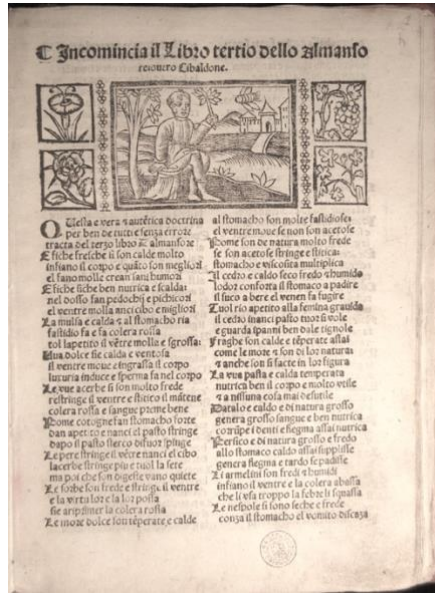 Incomincia il Libro tertio dello Almanso
re vouero Cibaldone.
Questa e vera & autētica doctrina
per ben de tutti e senza errore
tracta del terzo libro almansore
E fiche fresche ii son calde molto
infiano il corpo e quāto son megliori
el fano molle crean sani humori
E fiche siche ben nutrica e scalda
nel dosso fan pedochi e pichicori
el ventre molla ancicibo e migliori
La mulsa e calda & al stomacho ria
fastidio fa e fa colera rossa
tol lapetito il vētre molla e sgrossa
Uua dolce sie calda e ventosa
il ventre moue e ingrassa il corpo
luxuria induce e sperma fa nel corpo
Le vue acerbe si son molto frede
restringe il ventre e stitico il mātene
colera rossa e sangue preme bene
Pome cotogne fan stomacho forte
dan apetito e nanci el pasto stringe
dapo il pasto stercho
Le pere stringe il vētre nanci el cibo
lacerbe stringe piu e tuol la sete
ma poi che son digeste vano quiete
Le sorbe son frede e stringe il ventre
e la virtu lor e la lor possa
sie aripremer la colera rossa
Le more dolce son tēperate e calde
al stomacho son molte fastidiose
el ventre moue se non son acetose
Pome son de natura molto frede
se son acetose stringe e stitica
stomacho e viscosita multiplica
Il cedro e caldo seco fredo & humido
lodor conforta il stomaco a padire
il suco a bere el venen fa fugire
Tuol rio apetito alla femina grauida
il cedro inanci pasto tuor si vole
e guarda i panni ben dale tignole
Fraghe son calde e tēperate assai
come le more & son di lor natura
& anche son si facte in lor figura
La vua pasta e calda temperata
nutrica ben il corpo e molto vtile
& a nissuna cosa mai desutile
Datalo e caldo e di natura grosso
genera grosso sangue e ben nutrica
corrūpe i denti e flegma assai nutrica
Persico e di natura grosso e fredo
allo stomaco caldo assai supplisse
genera flegma e tardo se padisse
Li armelini son fredi & humidi
infiano il ventre e la colera abassa
che li vsa troppo la febre li squassa
Le nespole si sono seche e frede
conza il stomacho el vomito discaza